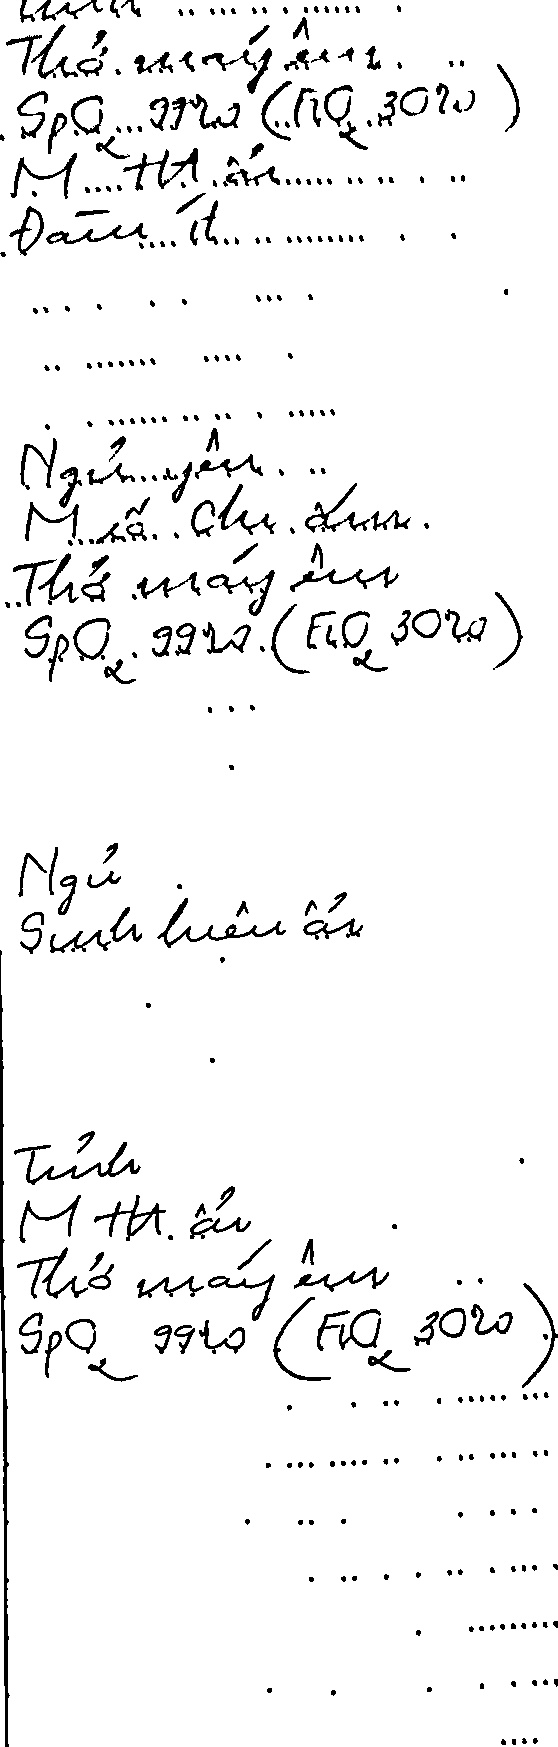 Thở máy êm
SpO2 99% (FiO2 30%)
M HA ổn
Đàm ít
Ngủ yên
M rõ. Chi ấm.
Thở máy êm
SpO2 99% (FiO2 30%)
Ngủ
Sinh hiệu ổn
Tỉnh
M HA ổn
Thở máy êm
SpO2 99% (FiO2 30%)